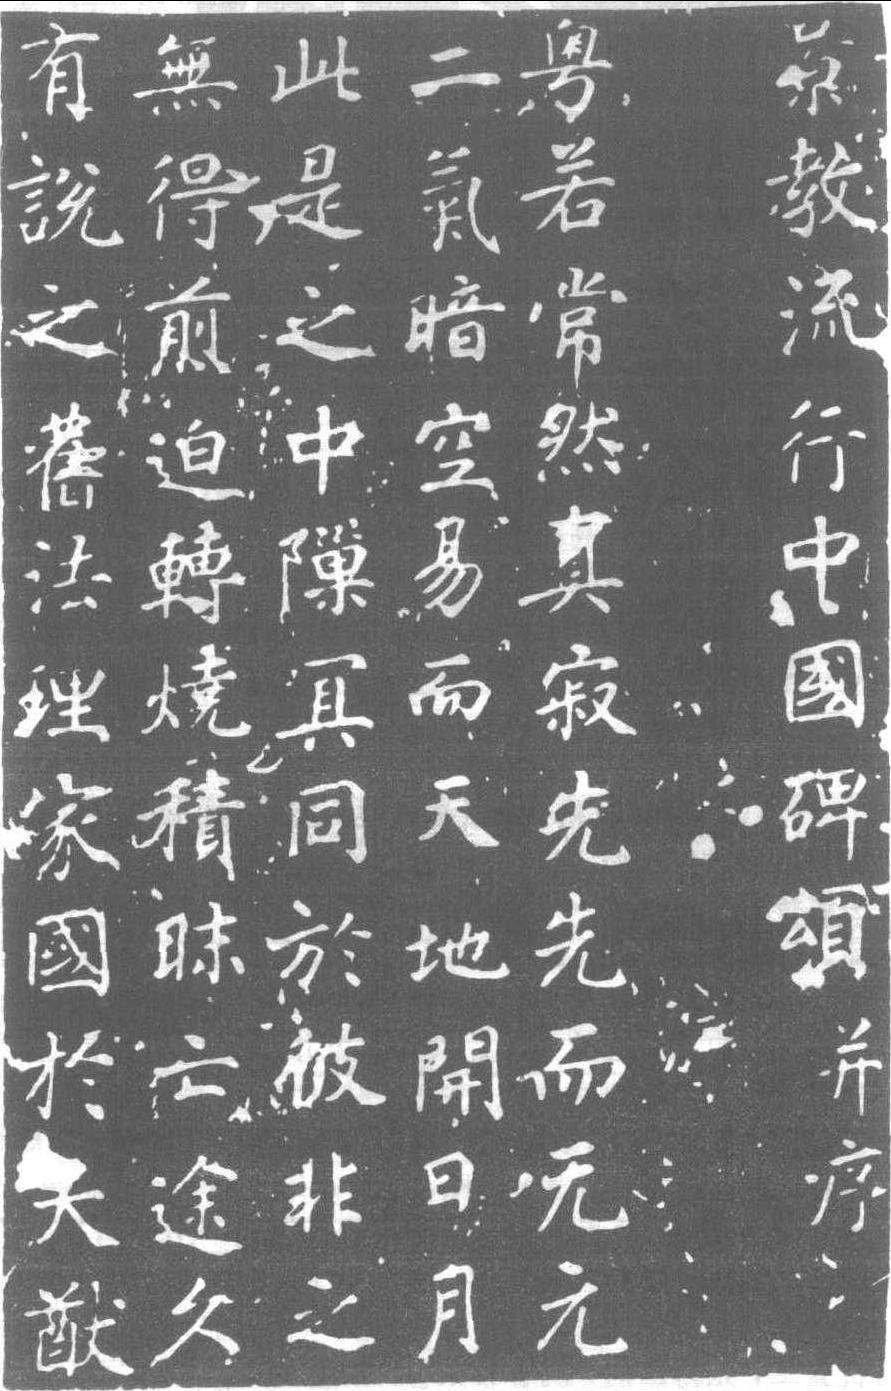 景教流行中國碑頌并序
粵若常然真寂先先而旡元
二氣暗空易而天地開日月
此是之中隟冥同於彼非之
無得煎迫轉燒積昧亡途久
有說之舊法理家國於大猷